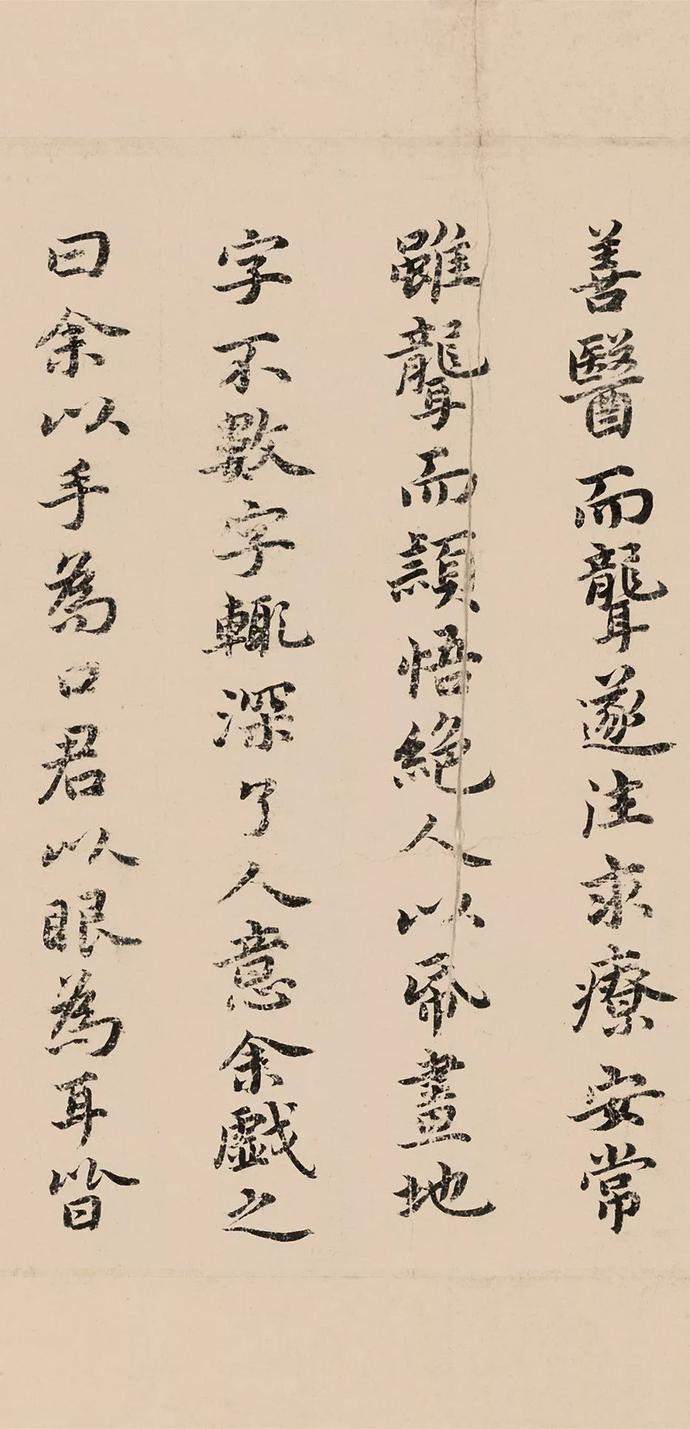 善醫而聾遂往求療安常
雖聾而穎悟絕人以帋畫地
字不數字輙深了人意余戲之
曰余以手為口君以眼為耳皆